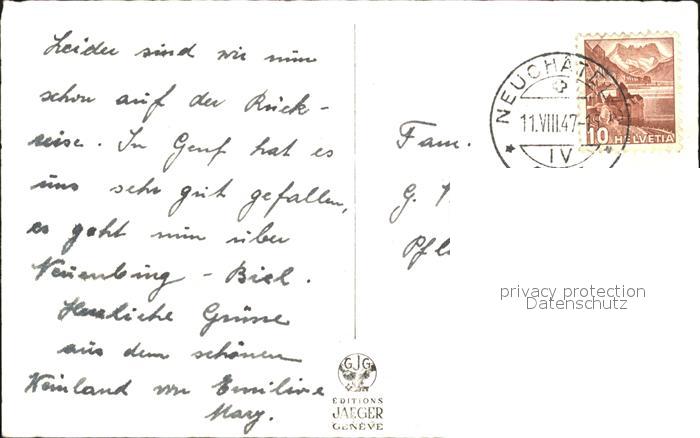 Leider sind wir nun
schon auf der Rück-
reise. In Genf hat es
uns sehr gut gefallen,
es geht nun über
Neuenburg - Biel.
Herzliche Grüsse
aus dem schönen
Weinland von
Mary.
Fam.
G.
NEUCHÂTEL
11.VIII.47
IV
10 HELVETIA
privacy protection
Datenschutz
GJG
EDITIONS
JAEGER
GENÈVE